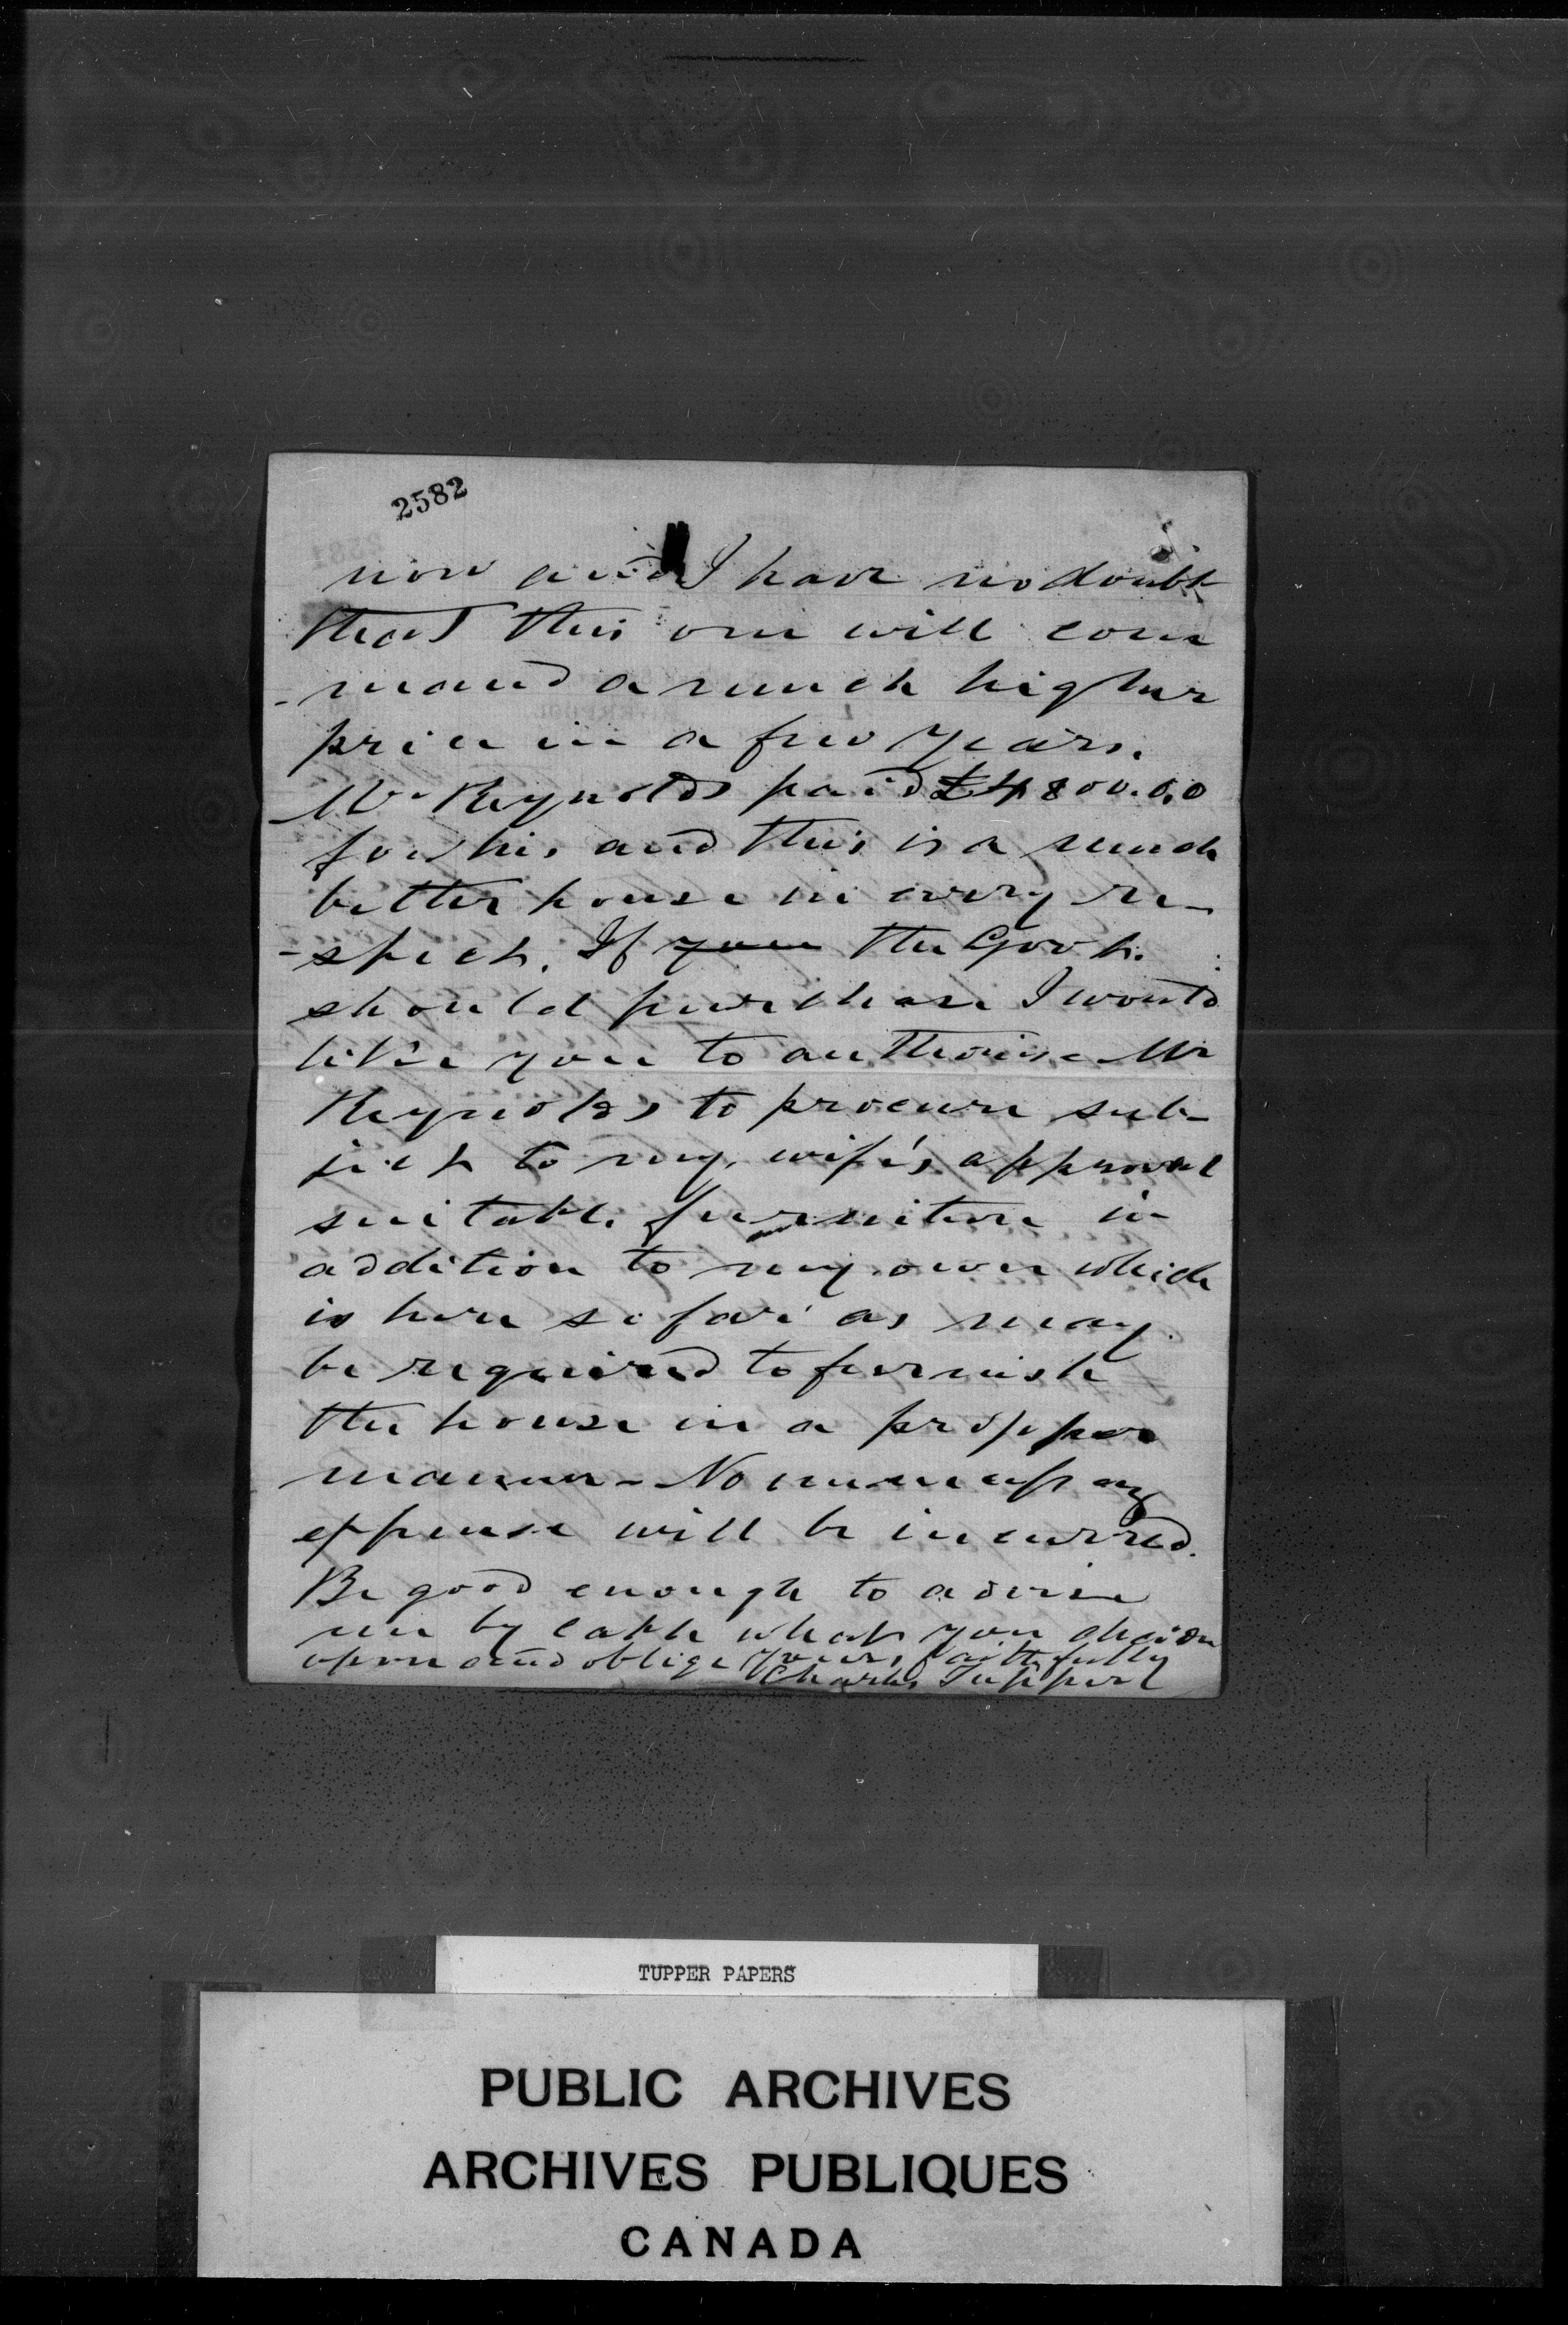 2582
now and I have no doubt
that this one will com
-mand a much higher
price in a few years.
Mr Reynolds paid £4800.0.0
for his, and this is a much
better house in every re-
-spect. If you the Govt.
should purchase I would
like you to authorise Mr
Reynolds to procure sub-
ject to my wife's approval
suitable furniture in
addition to my own which
is here so far as may
be required to furnish
the house in a propper
manner - No unnecessary
expense will be incurred.
Be good enough to advise
me by cable what you decide
upon and oblige yours faithfully
Charles Tupper
TUPPER PAPERS
PUBLIC ARCHIVES
ARCHIVES PUBLIQUES
CANADA